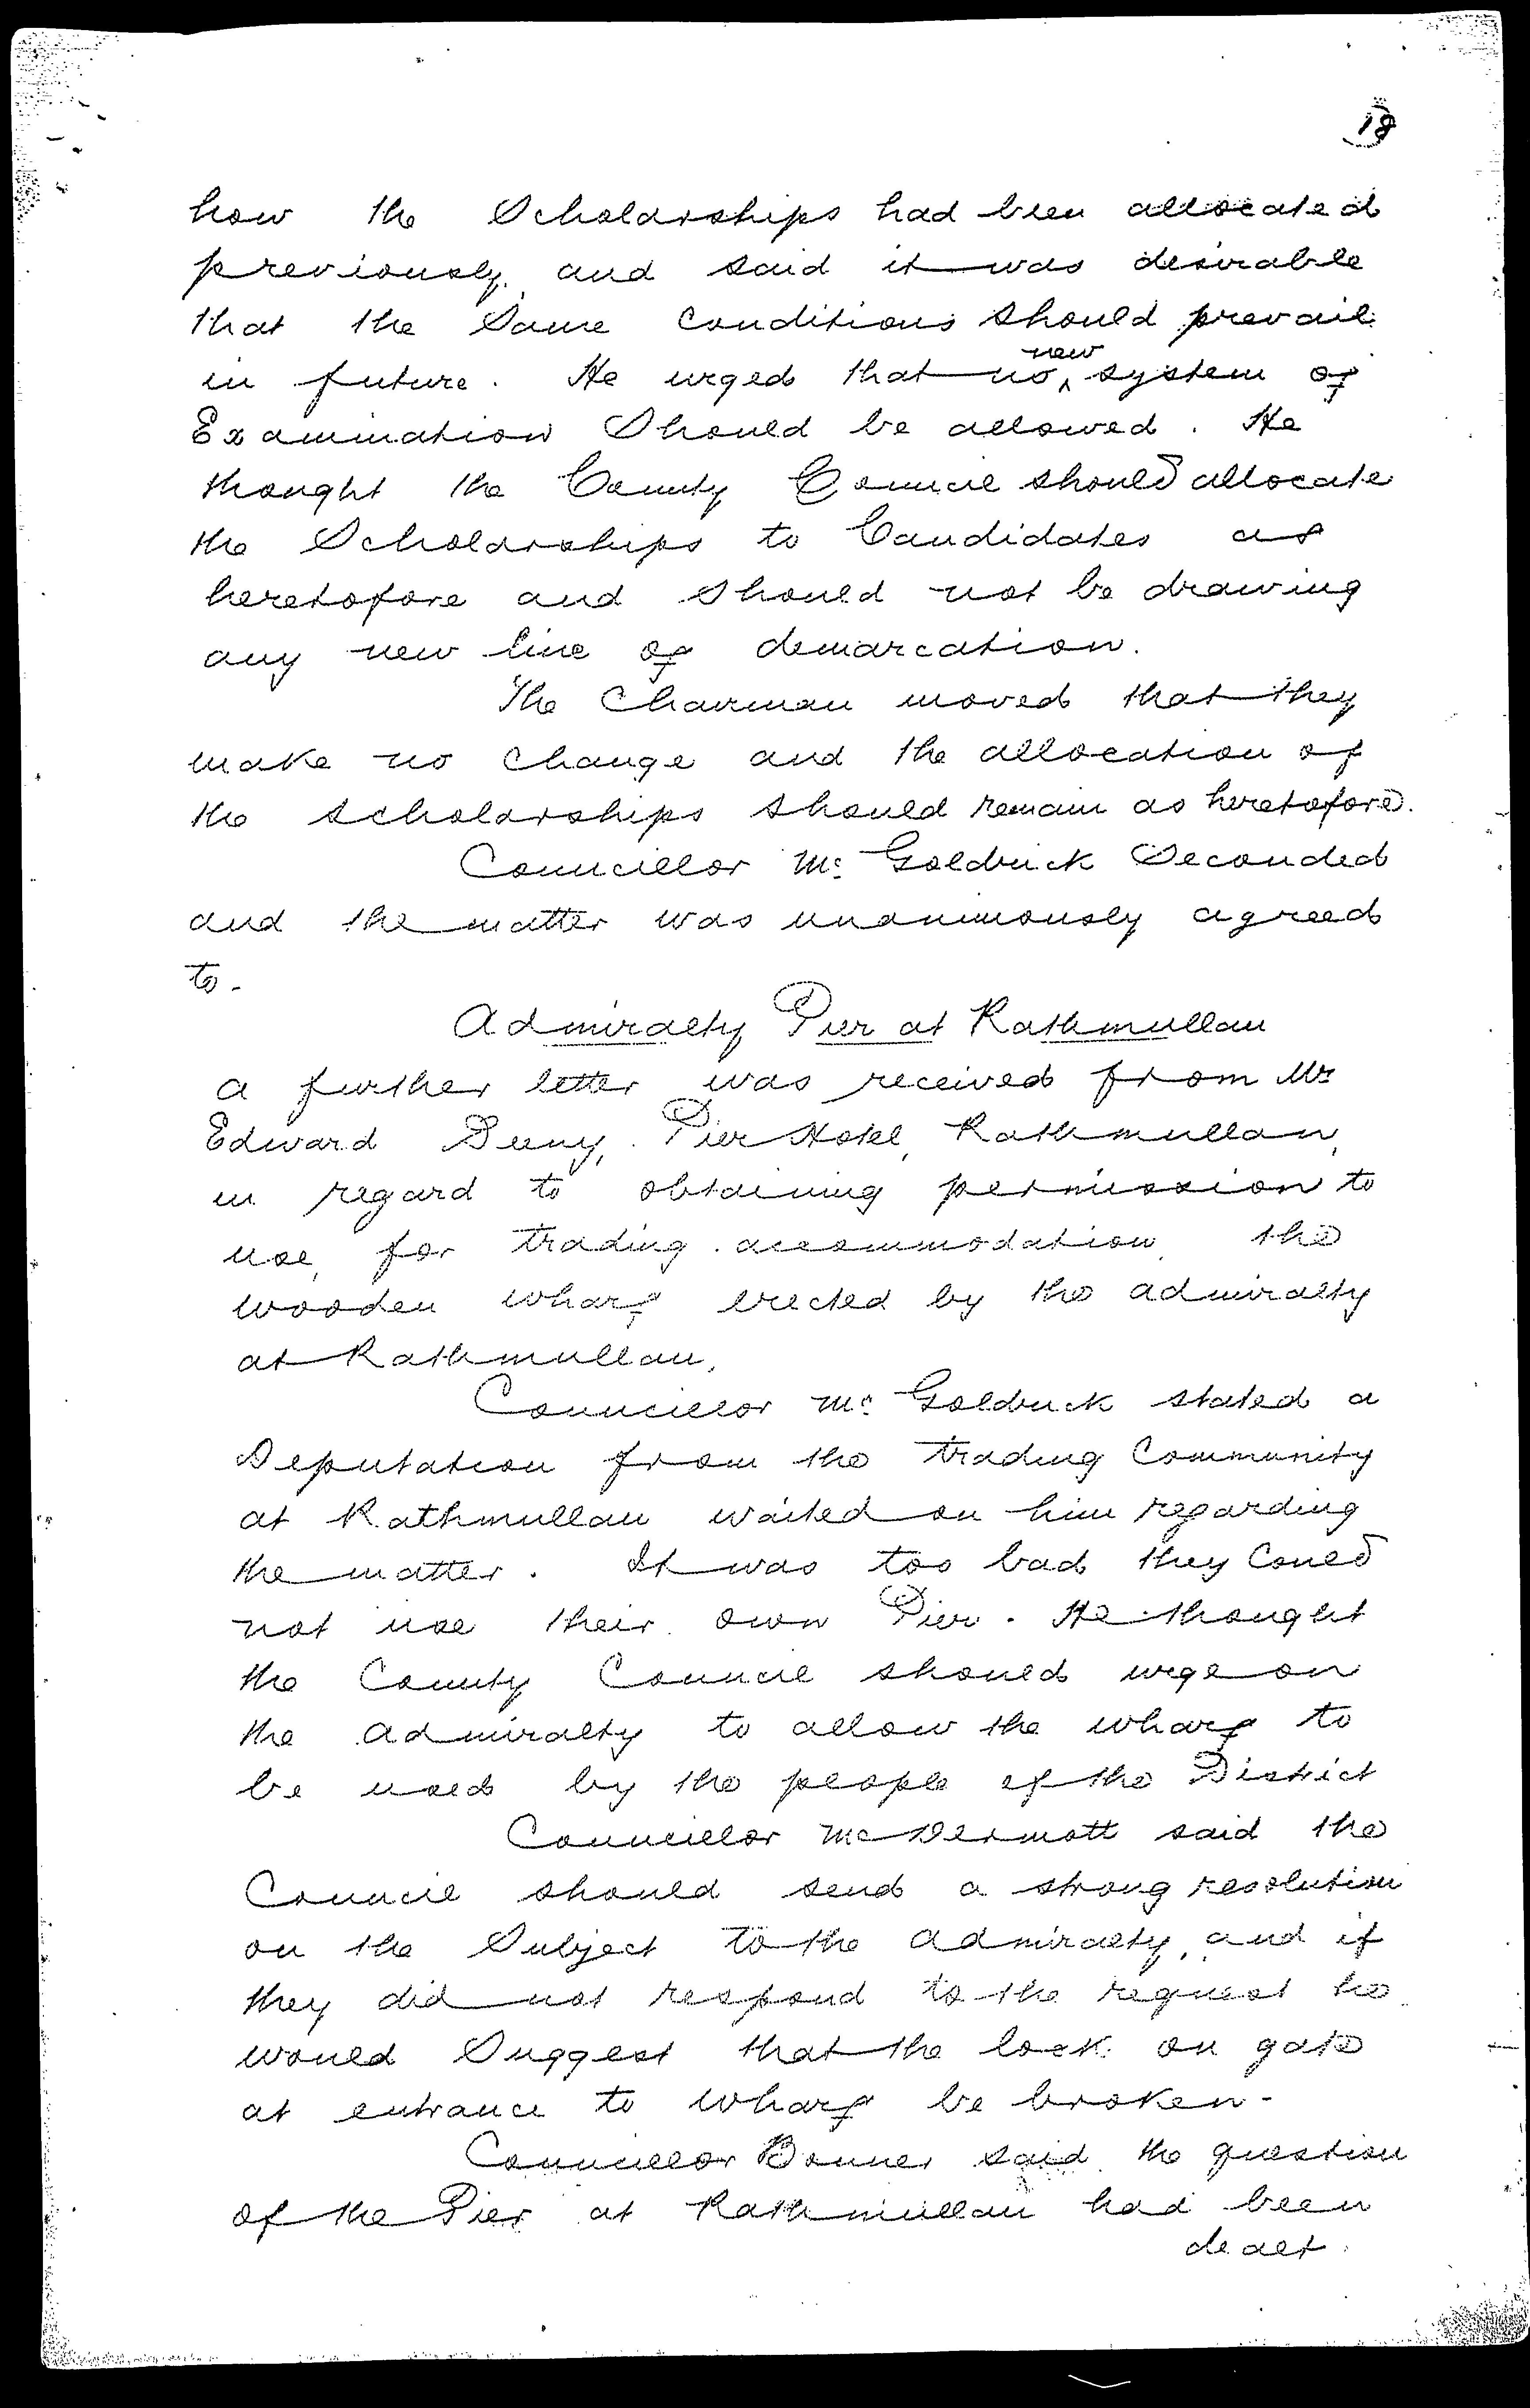 18
how the Scholarships had been allocated
previously, and said it was desirable
that the same conditions should prevail
in future. He urged that no new system of
Examination Should be allowed. He
thought the County Council should allocate
the Scholarships to Candidates as
heretofore and should not be drawing
any new line of demarcation.
The Chairman moved that they
make no change and the allocation of
the scholarships should remain as heretofore.
Councillor Mc Goldrick Seconded
and the matter was unanimously agreed
to.
Admiralty Pier at Rathmullan
A further letter was received from Mr
Edward Deeny, Pier Hotel, Rathmullan,
in regard to obtaining permission to
use, for trading accommodation, the
wooden wharf erected by the Admiralty
at Rathmullan.
Councillor Mc Goldrick stated a
Deputation from the trading Community
at Rathmullan waited on him regarding
the matter. It was too bad they could
not use their own Pier. He thought
the County Council should urge on
the Admiralty to allow the wharf to
be used by the people of the District
Councillor McDermott said the
Council should send a strong resolution
on the Subject to the Admiralty, and if
they did not respond to the request he
would Suggest that the lock on gate
at entrance to wharf be broken.
Councillor Bonner said the question
of the Pier at Rathmullan had been
dealt